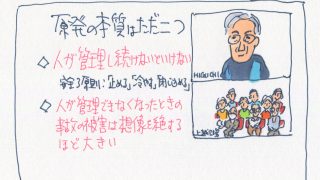 原発の本質はただ二つ
◇ 人が管理し続けないといけない
安全3原則:「止める」「冷やす」「閉じ込める」
◇ 人が管理できなくなったときの
事故の被害は想像を絶する
ほど大きい
HIGUCHI